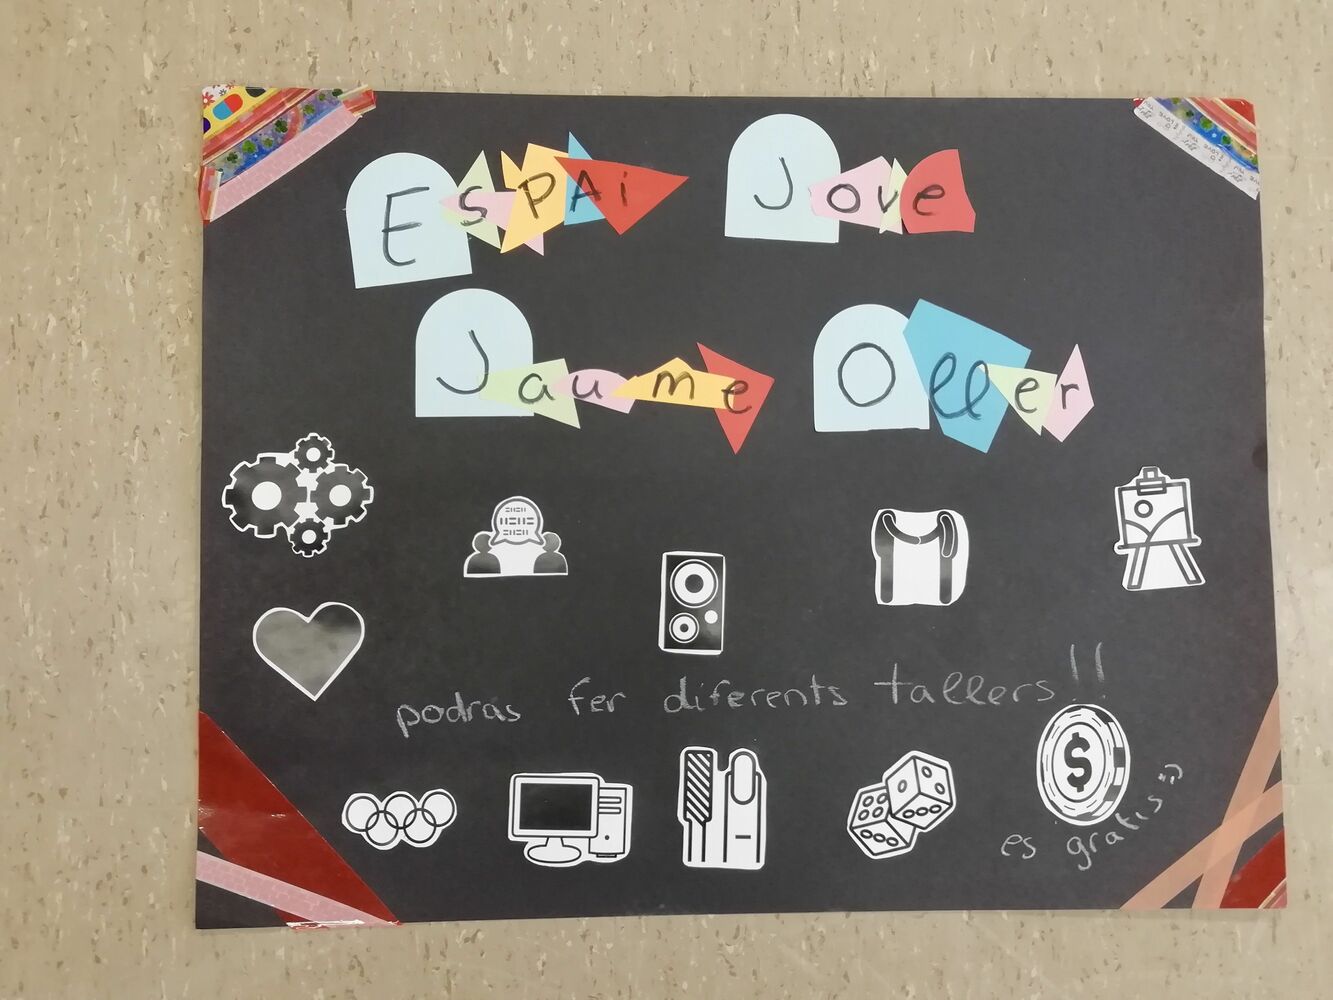 ESPAi Jove
Jaume Oller
podras fer diferents tallers!!
$
es gratis :)